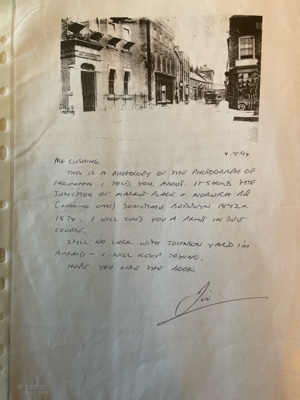 4.8.94
Mr CUSHING,
THIS IS A PHOTOCOPY OF THE PHOTOGRAPH OF
FAKENHAM I TOLD YOU ABOUT. IT SHOWS THE
JUNCTION OF MARKET PLACE & NORWICH RD
(LOOKING EAST) SOMETIME BETWEEN 1872 &
1874. I WILL SEND YOU A PRINT IN DUE
COURSE.
STILL NO LUCK WITH JOHNSON YARD I'M
AFRAID - I WILL KEEP TRYING.
HOPE YOU LIKE THE BOOK
Jim